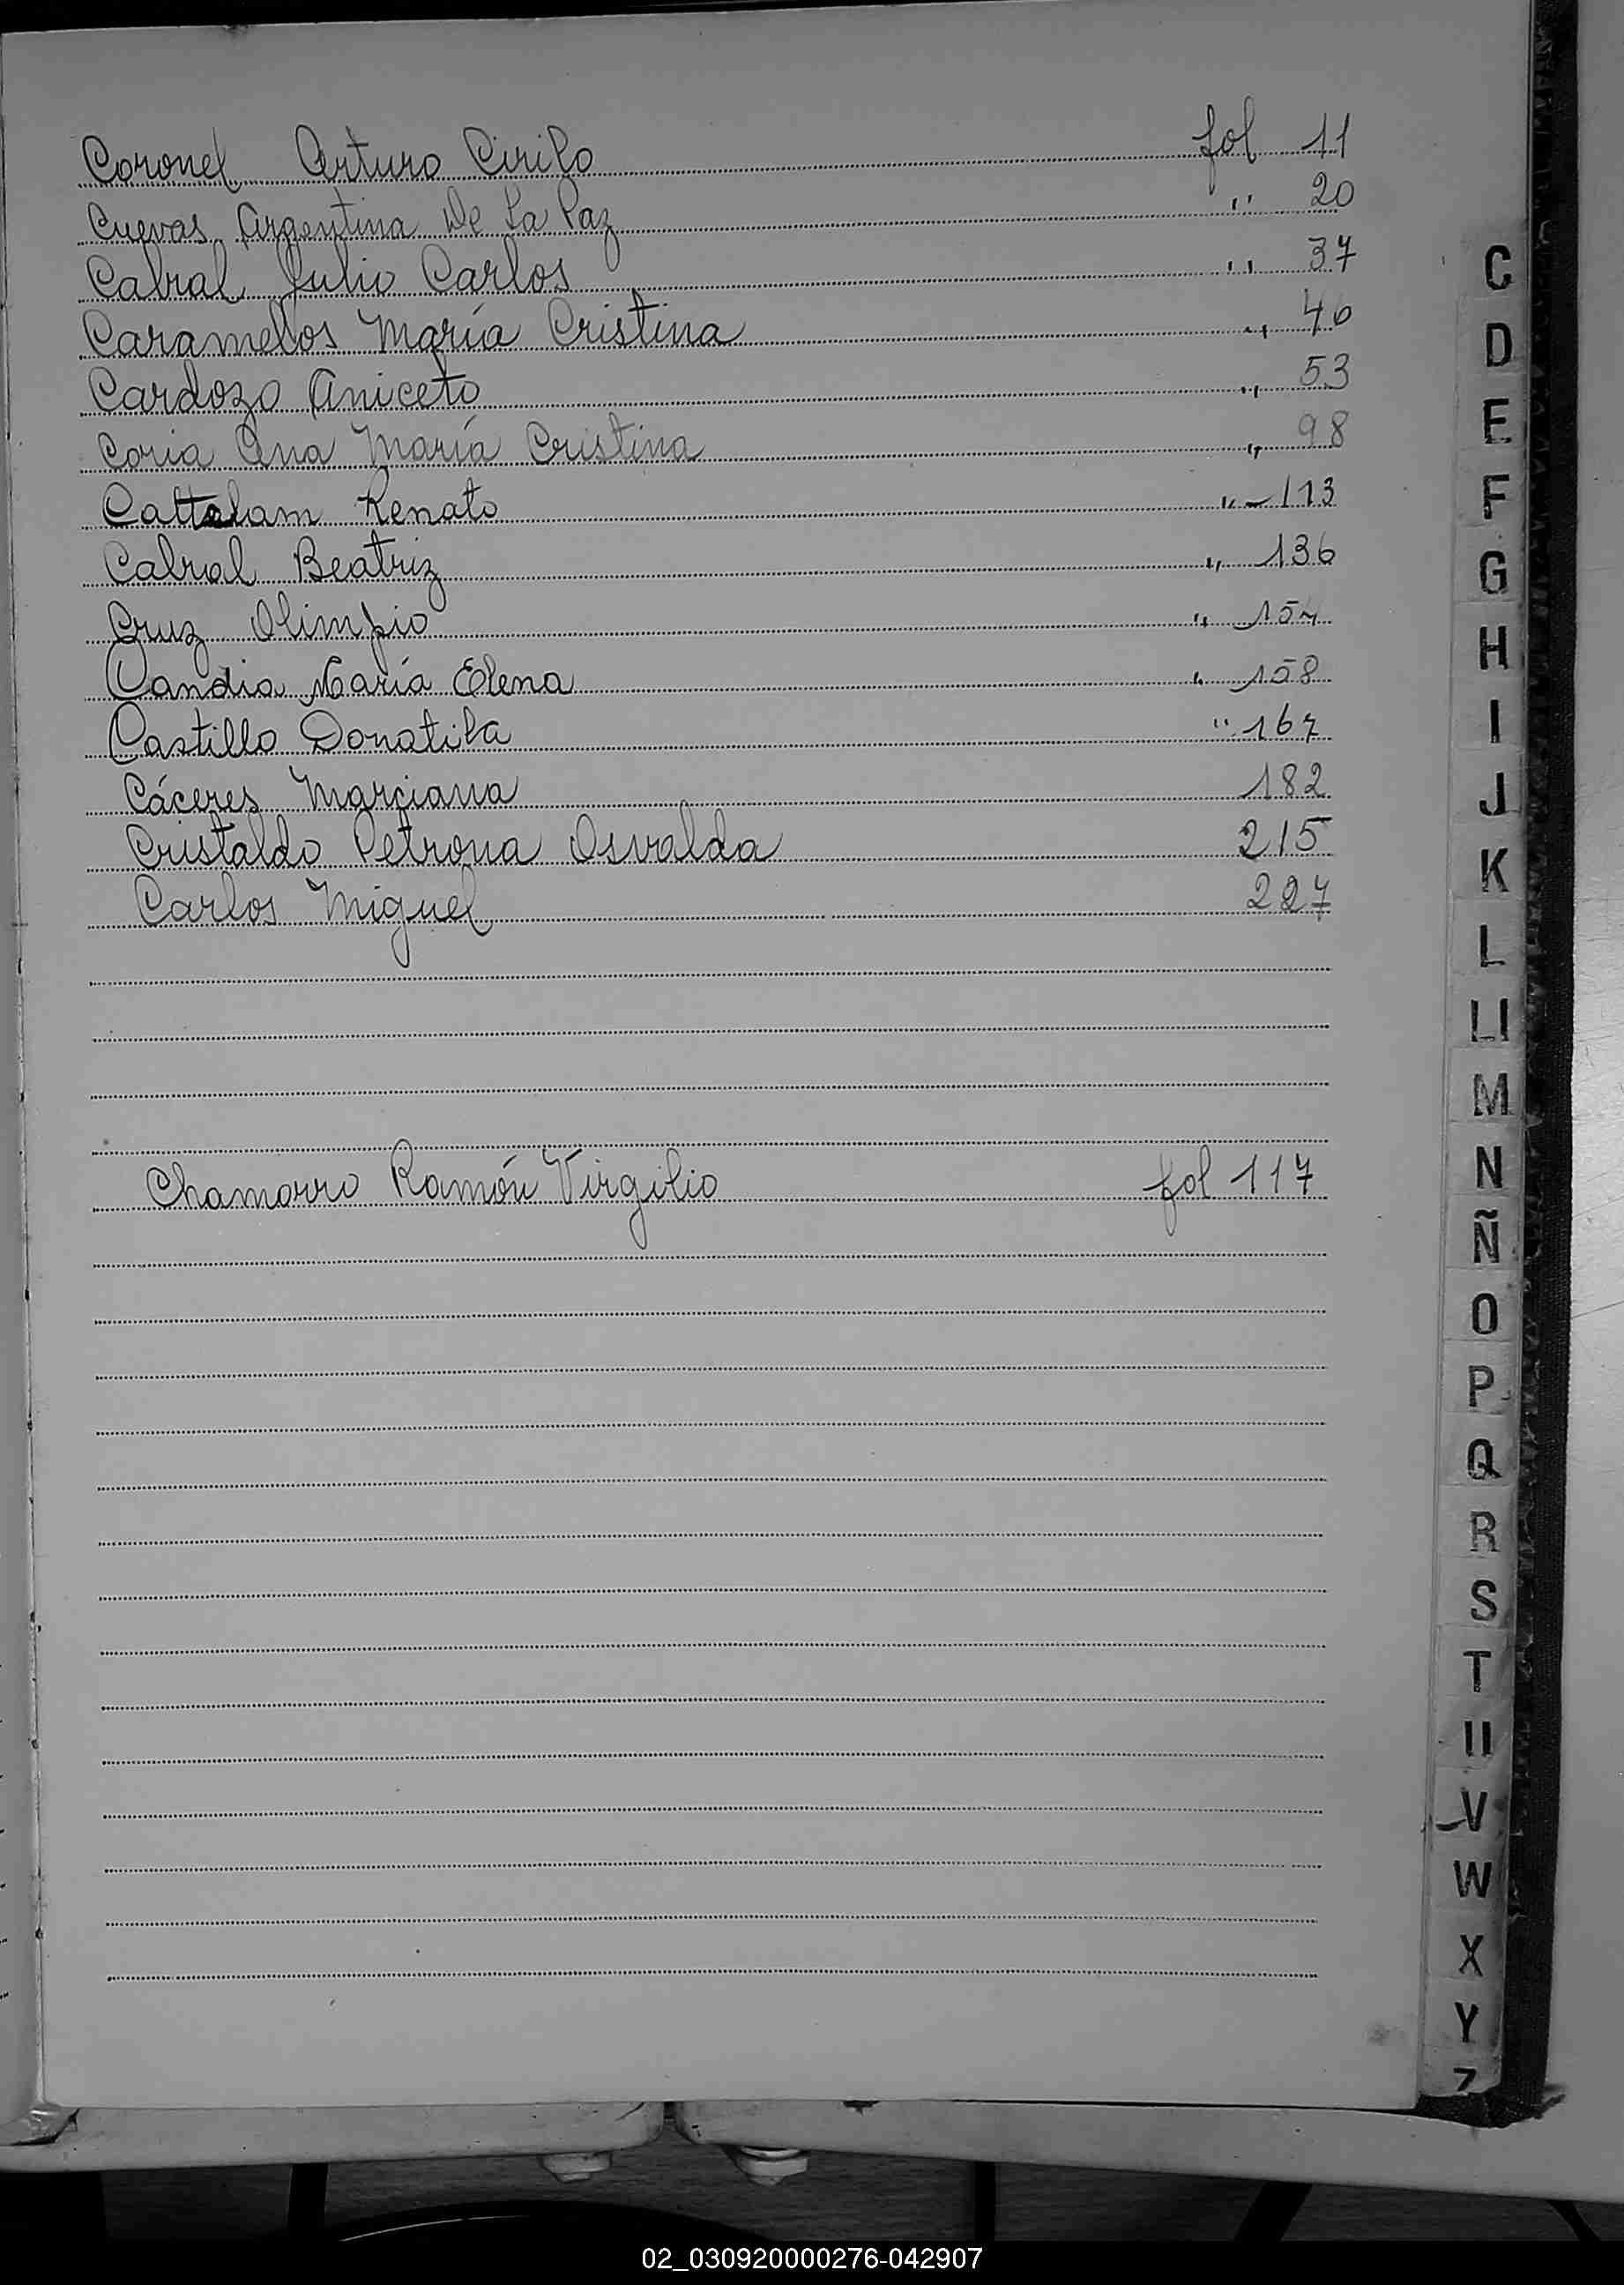 Coronel Arturo Cirilo fol 11
Cuevas Argentina De La Paz " 20
Cabral Julio Carlos " 37
Caramellos María Cristina " 46
Cardozo Aniceto " 53
Coria Ana María Cristina " 98
Cattelam Renato " - 113
Cabral Beatriz " 136
Cruz Olimpio " 157
Candia María Elena " 158
Castillo Donatila " 167
Cáceres Marciana 182
Cristaldo Petrona Osvalda 215
Carlos Miguel 227
Chamorro Ramón Virgilio fol 117
C
D
E
F
G
H
I
J
K
L
Ll
M
N
Ñ
O
P
Q
R
S
T
U
V
W
X
Y
Z
02_030920000276-042907